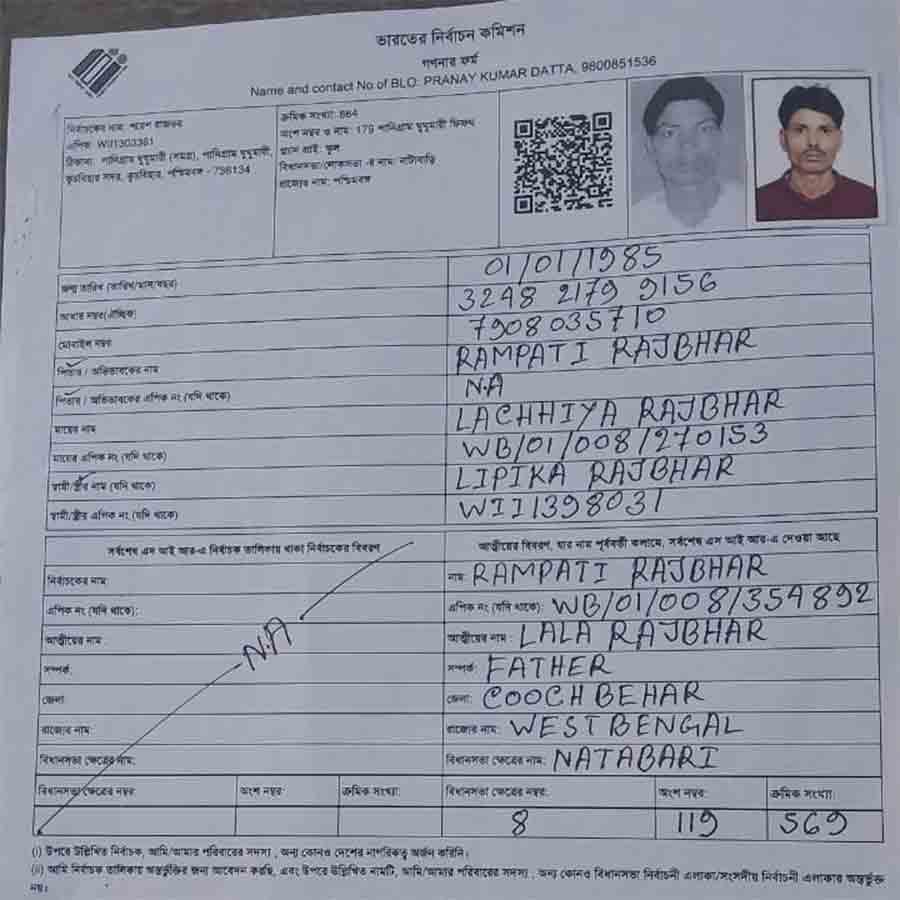 ভারতের নির্বাচন কমিশন
গণনার ফর্ম
Name and contact No of BLO: PRANAY KUMAR DATTA, 9800851536
নির্বাচকের নাম: পরেশ রাজভর
এপিক: WII1303361
ঠিকানা: পানিগ্রাম ঘুঘুমারী (সমগ্র), পানিগ্রাম ঘুঘুমারী,
কুচবিহার সদর, কুচবিহার, পশ্চিমবঙ্গ - 736134
ক্রমিক সংখ্যা: 664
অংশ নম্বর ও নাম: 179 পানিগ্রাম ঘুঘুমারী ফিফথ
প্ল্যান প্রাই: স্কুল
বিধানসভা/লোকসভা -র নাম: নাটাবাড়ি
রাজ্যের নাম: পশ্চিমবঙ্গ
জন্ম তারিখ (তারিখ/মাস/বছর) 01/01/1985
আধার নম্বর(ঐচ্ছিক) 3248 2179 9156
মোবাইল নম্বর 7908035710
পিতার / অভিভাবকের নাম RAMPATI RAJBHAR
পিতার / অভিভাবকের এপিক নং (যদি থাকে) N.A
মায়ের নাম LACHHIYA RAJBHAR
মায়ের এপিক নং (যদি থাকে) WB/01/008/270153
স্বামী/স্ত্রীর নাম (যদি থাকে) LIPIKA RAJBHAR
স্বামী/স্ত্রীর এপিক নং (যদি থাকে) WII1398031
সর্বশেষ এস আই আর-এ নির্বাচক তালিকায় থাকা নির্বাচকের বিবরণ
আত্মীয়ের বিবরণ, যার নাম পূর্ববর্তী কলামে, সর্বশেষ এস আই আর-এ দেওয়া আছে
নির্বাচকের নাম:
নাম: RAMPATI RAJBHAR
এপিক নং (যদি থাকে):
এপিক নং (যদি থাকে): WB/01/008/354892
আত্মীয়ের নাম :
আত্মীয়ের নাম : LALA RAJBHAR
N.A
সম্পর্ক:
সম্পর্ক: FATHER
জেলা:
জেলা: COOCH BEHAR
রাজ্যের নাম:
রাজ্যের নাম: WEST BENGAL
বিধানসভা ক্ষেত্রের নাম:
বিধানসভা ক্ষেত্রের নাম: NATABARI
বিধানসভা ক্ষেত্রের নম্বর: অংশ নম্বর: ক্রমিক সংখ্যা:
বিধানসভা ক্ষেত্রের নম্বর: অংশ নম্বর: ক্রমিক সংখ্যা:
8 119 569
(i) উপরে উল্লিখিত নির্বাচক, আমি/আমার পরিবারের সদস্য , অন্য কোনও দেশের নাগরিকত্ব অর্জন করিনি।
(ii) আমি নির্বাচক তালিকায় অন্তর্ভুক্তির জন্য আবেদন করছি, এবং উপরে উল্লিখিত নামটি, আমি/আমার পরিবারের সদস্য , অন্য কোনও বিধানসভা নির্বাচনী এলাকা/সংসদীয় নির্বাচনী এলাকার অন্তর্ভুক্ত
নয়।